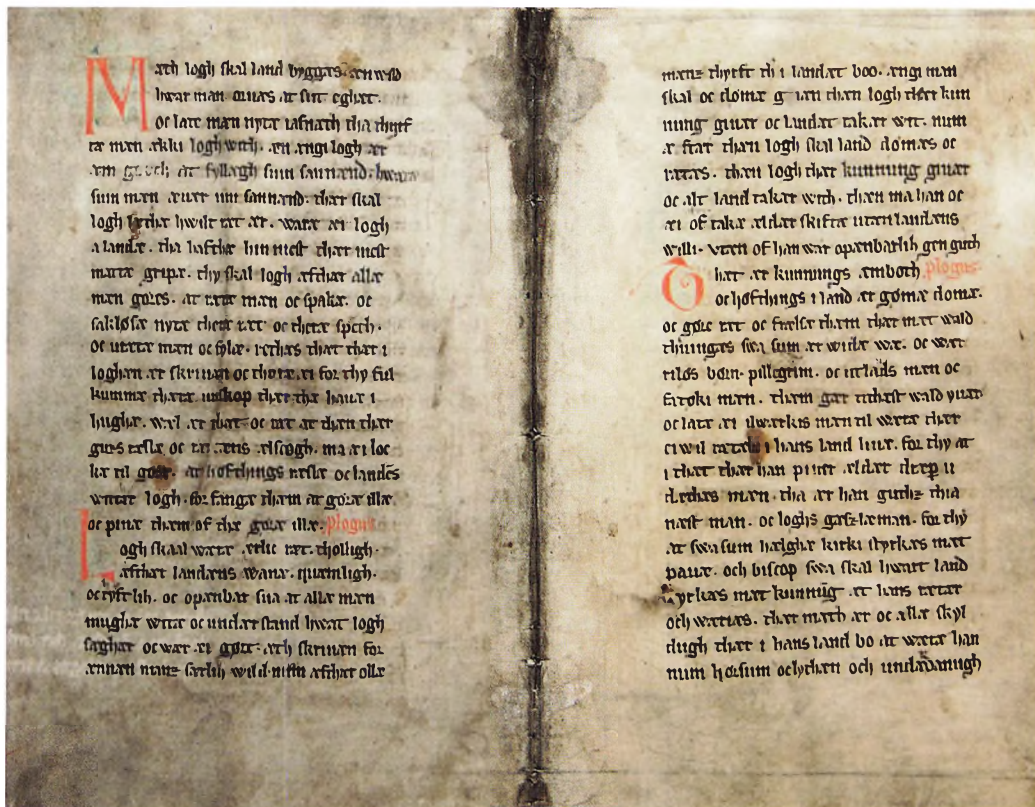 Mæth logh skal land byggæs. æn wild
hwar man oruæs at sitt eghæt.
oc latæ mæn nytæ iafnæth tha thyrf
tæ mæn ækki logh with. æn ængi logh ær
æm goth at fyllægh sum sannænd. hwaræ
sum mæn æuær um sannænd. thær skal
logh lethæ hwilt ræt ær. waræ æi logh
a landæ. tha hafthæ hin mest thær mest
mattæ gripæ. thy skal logh æfthær allæ
mæn gøres. at rætæ mæn oc spakæ. oc
sakløsæ nytæ theræ ræt oc theræ spæth.
oc urætæ mæn oc fylæ. rethæs thæt thær i
loghæn ær skriuæn oc thoræ æi for thy ful
kummæ theræ unskop thær the hauæ i
hughæ. wæl ær thæt oc ræt at thæn thær
guts ræslæ oc rætæns ælscogh. ma æi loc
kæ til goz. at høfthings ræslæ oc landæs
wittær logh. for fangæ thæm at gøræ illæ
oc pinæ them of the gøræ illæ. plogus
Logh skal wæræ ærlic ræt. tholligh.
æfthær landæns wanæ. quæmligh.
oc tyftlih. oc opænbar sua at allæ mæn
mughæ witæ oc undærstand hwat logh
sæghær oc war æi gørt. æth skriuæn for
ænnæn manz særlih wild. num æfthær ollæ
mænz thyrft th i landæt boo. ængi man
skal oc dømæ g ien thæn logh thær kun
nung giuær oc landæt takær wit. num
æ ftær than logh skal land dømæs oc
rætæs. thæn logh thær kunnung giuær
oc alt land takær with. thæn ma han oc
æi of takæ ældær skiftæ utæn landæns
willi. utæn of han war opænbarlih gen guth
That ær kunnungs æmboth plogus
oc høfthings i land at gømæ dømæ.
oc gøre ræt oc frælsæ them thær mæt wald
thiungæs swa sum ær widæ wæ. oc wær
riløs børn. pillegrim. oc utlands mæn oc
fatøki mæn. them gær titthæst wald yuær
oc latæ æi ilwærkis mæn til wæræ thær
ei wil rætæs i hans land liuæ. for thy at
i that thær han pinær ældær dræpær u
dethæs mæn. tha ær han guthz thiæ
næst man. oc loghs gæszlæman. for thy
at swa sum hælghæ kirki styrkæs mæt
pauæ. och biscop swa skal hwært land
styrkæs mæt kunnung ær hans rætær
och wæriæs. thær mæth ær oc allæ skyl
dugh thær i hans land bo at wæræ han
num hørsum oc lythæn och undædanugh